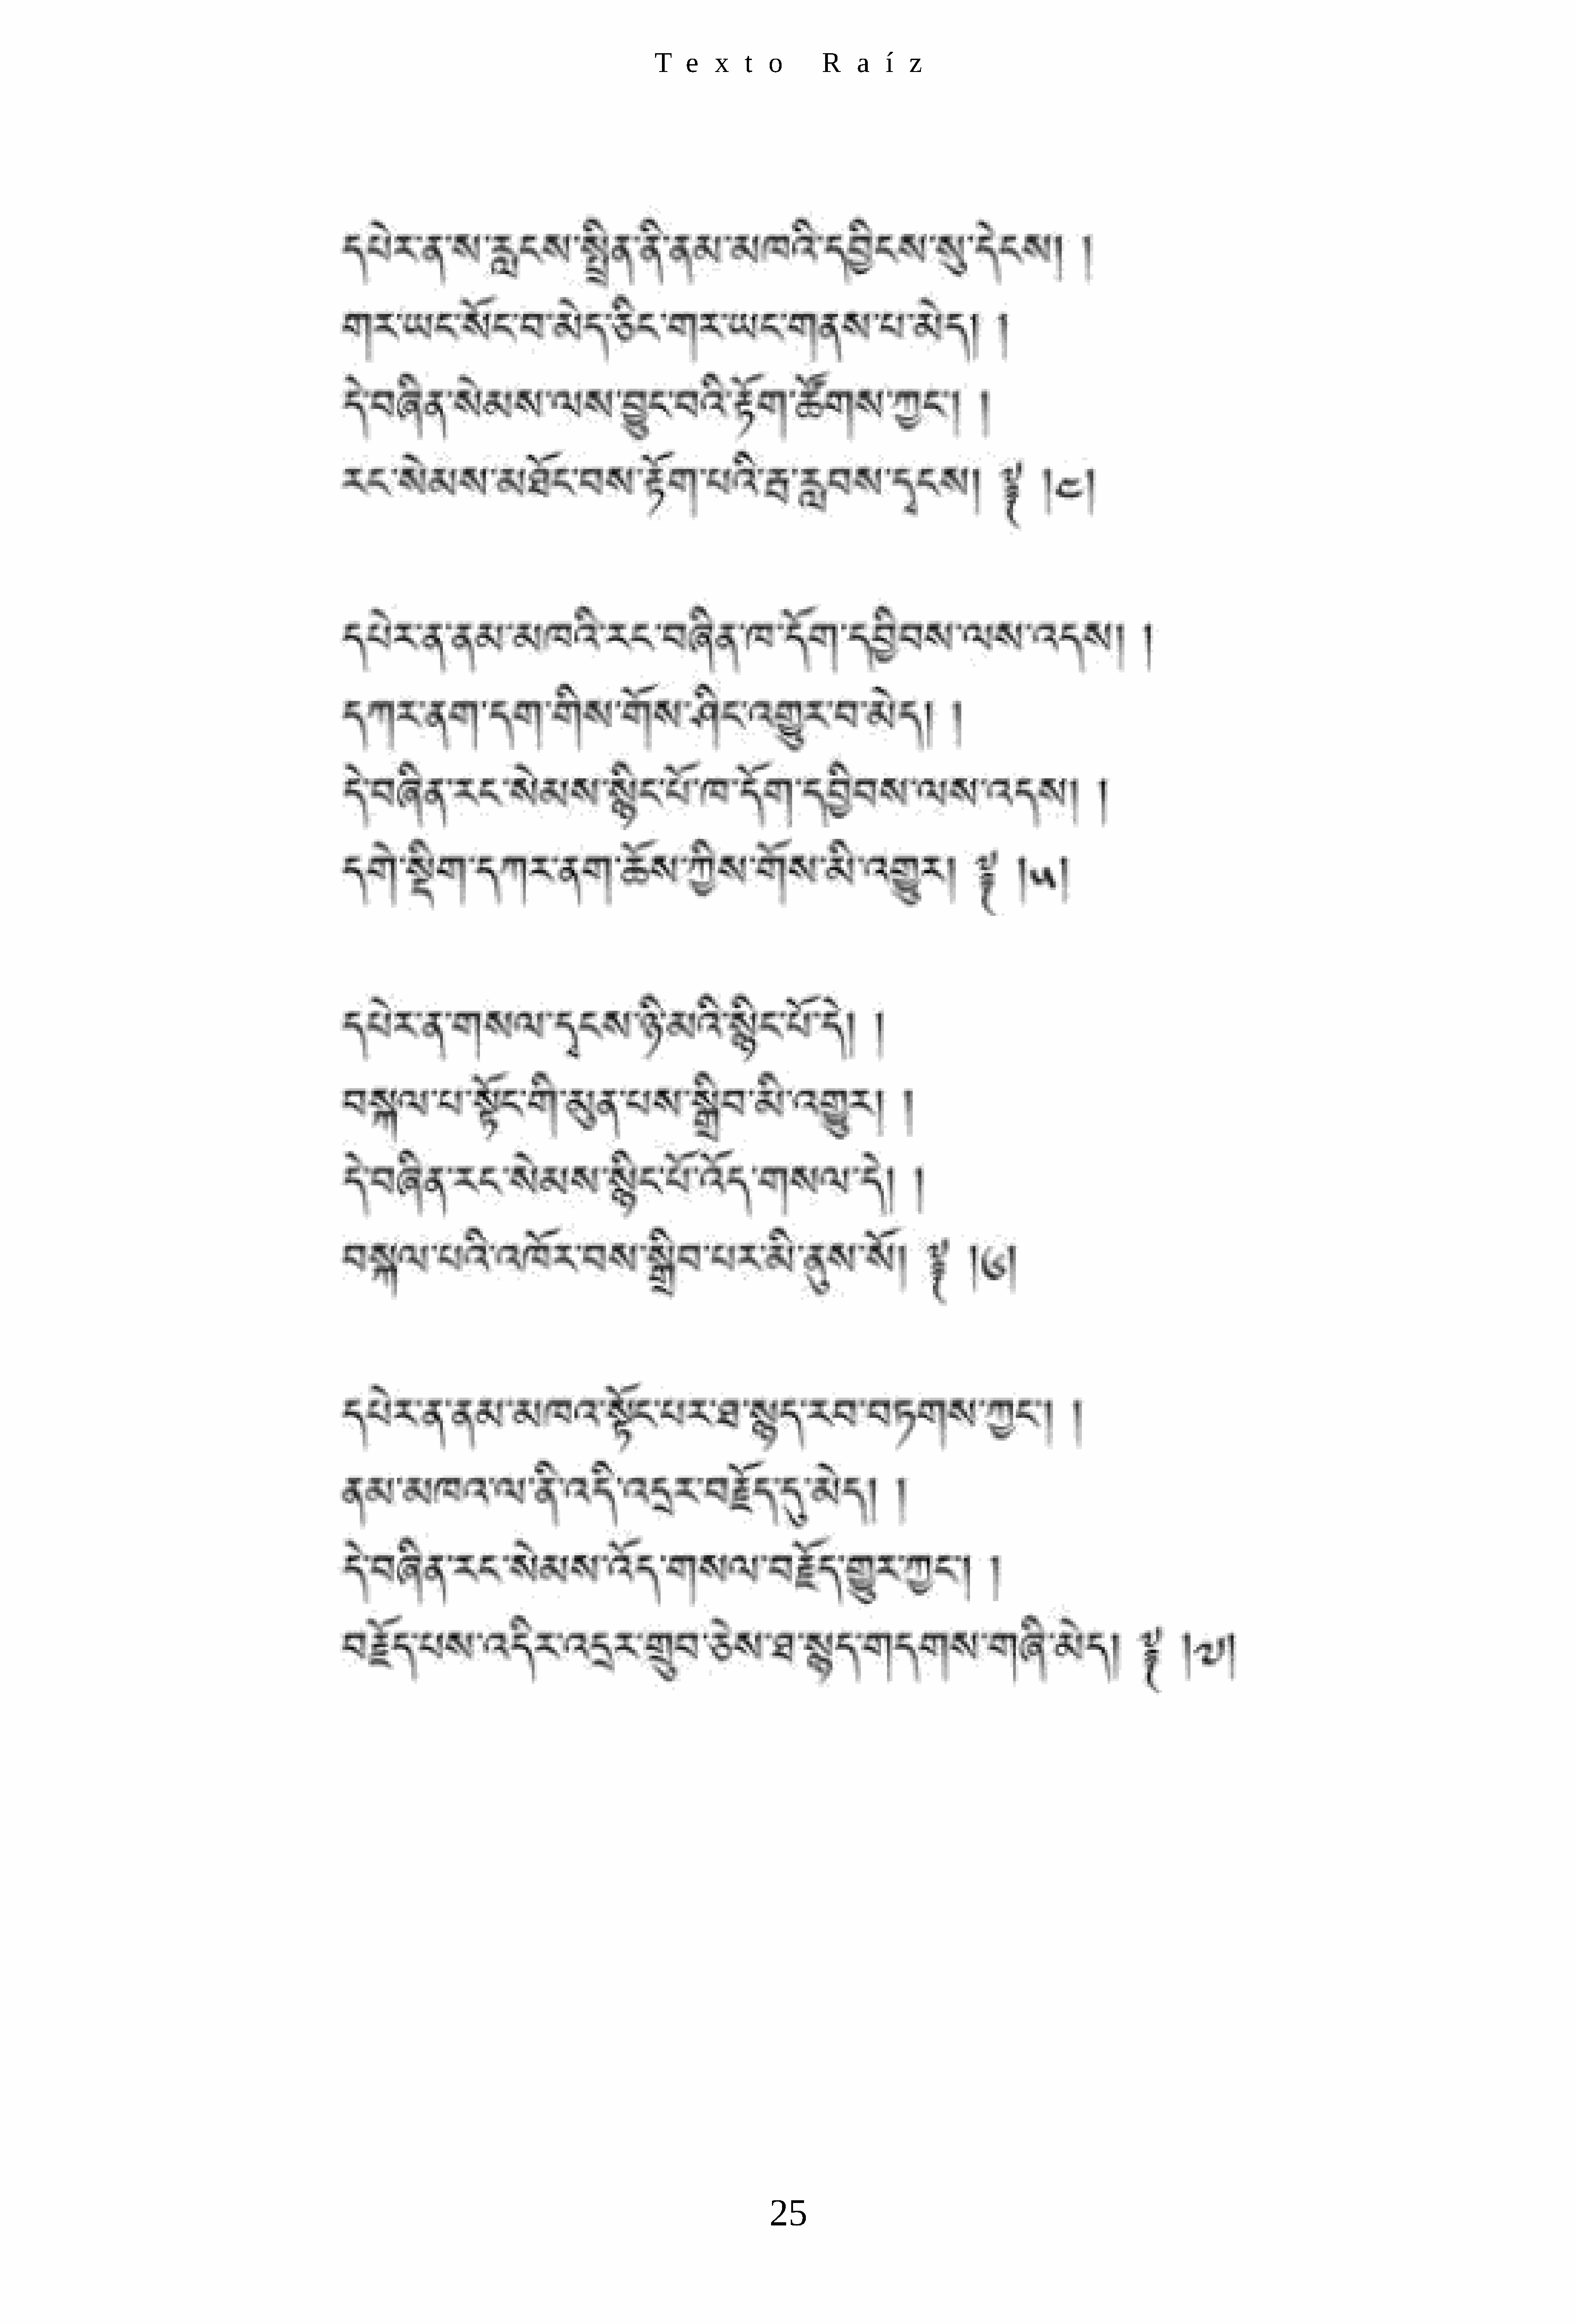 Texto Raíz
དཔེར་ན་ས་རླངས་སྤྲིན་ནི་ནམ་མཁའི་དབྱིངས་སུ་དེངས། །
གར་ཡང་སོང་བ་མེད་ཅིང་གར་ཡང་གནས་པ་མེད། །
དེ་བཞིན་སེམས་ལས་བྱུང་བའི་རྟོག་ཚོགས་ཀྱང་། །
རང་སེམས་མཐོང་བས་རྟོག་པའི་རྦ་རླབས་དྭངས། །༤།
དཔེར་ན་ནམ་མཁའི་རང་བཞིན་ཁ་དོག་དབྱིབས་ལས་འདས། །
དཀར་ནག་དག་གིས་གོས་ཤིང་འགྱུར་བ་མེད། །
དེ་བཞིན་རང་སེམས་སྙིང་པོ་ཁ་དོག་དབྱིབས་ལས་འདས། །
དགེ་སྡིག་དཀར་ནག་ཆོས་ཀྱིས་གོས་མི་འགྱུར། །༥།
དཔེར་ན་གསལ་དྭངས་ཉི་མའི་སྙིང་པོ་དེ། །
བསྐལ་པ་སྟོང་གི་མུན་པས་སྒྲིབ་མི་འགྱུར། །
དེ་བཞིན་རང་སེམས་སྙིང་པོ་འོད་གསལ་དེ། །
བསྐལ་པའི་འཁོར་བས་སྒྲིབ་པར་མི་ནུས་སོ། །༦།
དཔེར་ན་ནམ་མཁའ་སྟོང་པར་ཐ་སྙད་རབ་བཏགས་ཀྱང་། །
ནམ་མཁའ་ལ་ནི་འདི་འདྲར་བརྗོད་དུ་མེད། །
དེ་བཞིན་རང་སེམས་འོད་གསལ་བརྗོད་གྱུར་ཀྱང་། །
བརྗོད་པས་འདིར་འདྲར་གྲུབ་ཅེས་ཐ་སྙད་གདགས་གཞི་མེད། །༧།
25